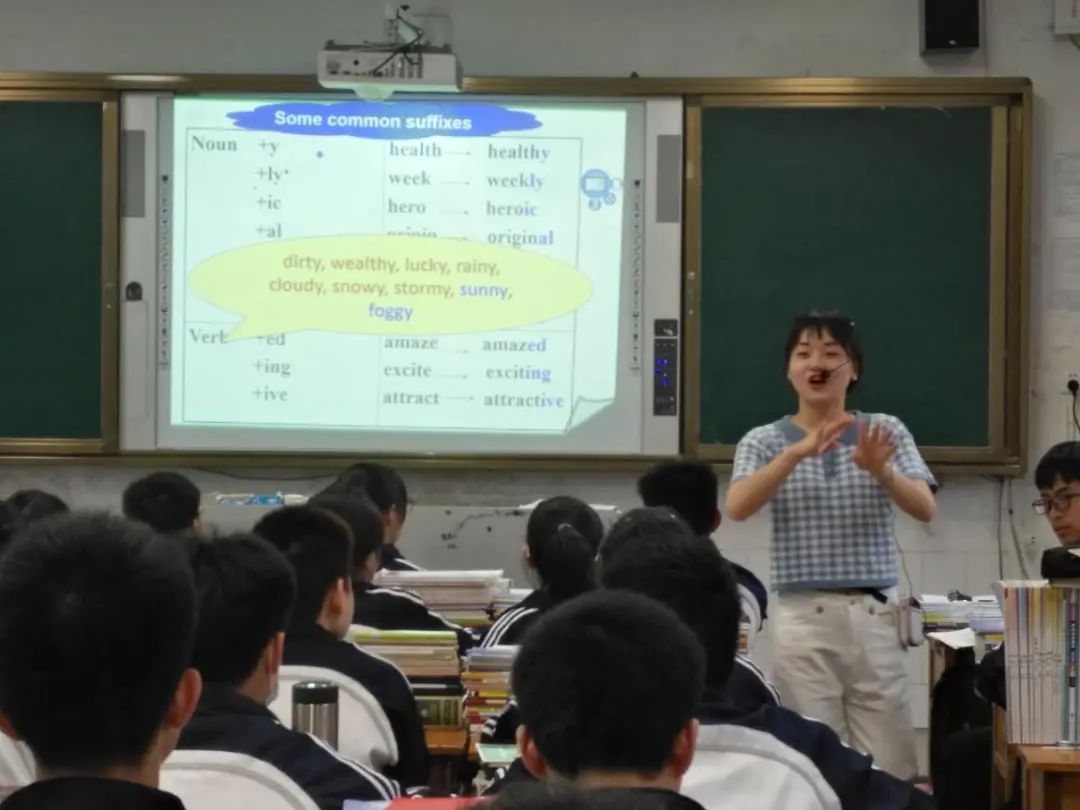 Some common suffixes
Noun +y health → healthy
+ly week → weekly
+ic hero → heroic
+al origin → original
dirty, wealthy, lucky, rainy,
cloudy, snowy, stormy, sunny,
foggy
Verb +ed amaze → amazed
+ing excite → exciting
+ive attract → attractive